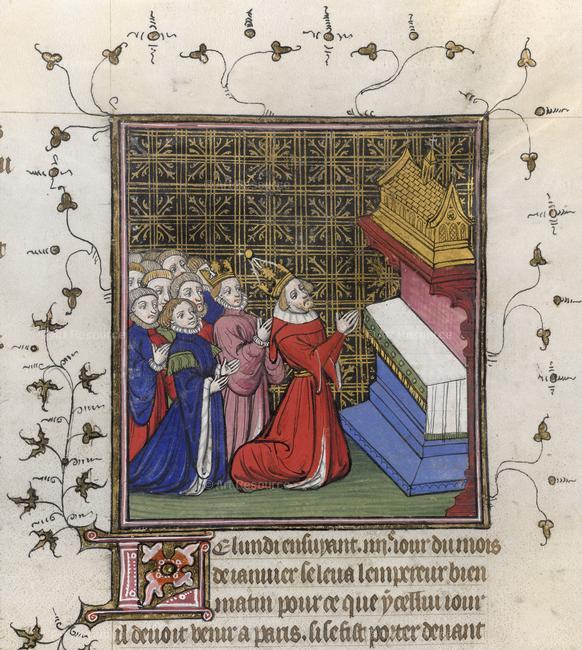 Le lundi ensuyant. iiij.e iour du mois
de ianuier se leua lempereur bien
matin pour ce que ycellui iour
il deuoit venir a paris. si se fist porter deuant
Art Resource